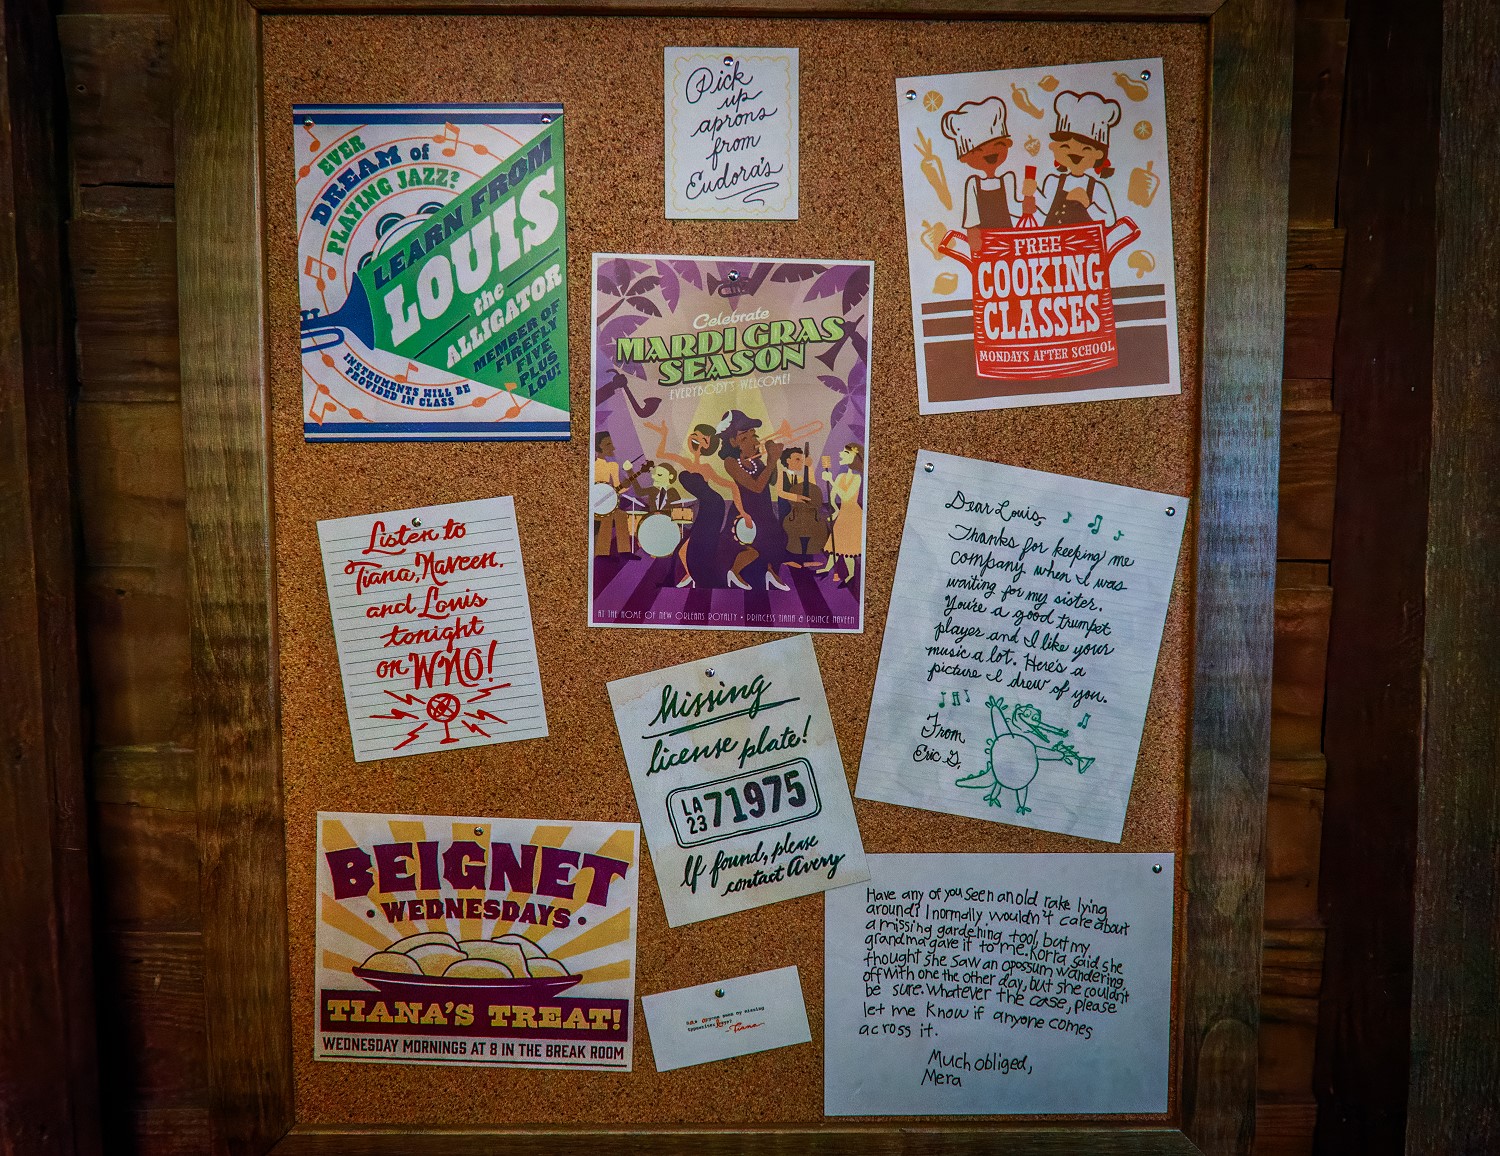 Pick
up
aprons
from
Eudora's
EVER
DREAM of
PLAYING JAZZ?
LEARN FROM
LOUIS
the
ALLIGATOR
MEMBER OF
FIREFLY
FIVE
PLUS
LOU!
INSTRUMENTS WILL BE
PROVIDED IN CLASS
FREE
COOKING
CLASSES
MONDAYS AFTER SCHOOL
Celebrate
MARDI GRAS
SEASON
EVERYBODY'S WELCOME!
AT THE HOME OF NEW ORLEANS ROYALTY • PRINCESS TIANA & PRINCE NAVEEN
Listen to
Tiana, Naveen,
and Louis
tonight
on WNO!
Dear Louis,
Thanks for keeping me
company when I was
waiting for my sister.
You're a good trumpet
player and I like your
music a lot. Here's a
picture I drew of you.
From
Eric G.
Missing
license plate!
LA
23
71975
If found, please
contact Avery
BEIGNET
• WEDNESDAYS •
TIANA'S TREAT!
WEDNESDAY MORNINGS AT 8 IN THE BREAK ROOM
Have any of you seen an old rake lying
around? I normally wouldn't care about
a missing gardening tool, but my
grandma gave it to me. Korra said she
thought she saw an opossum wandering
off with one the other day, but she couldn't
be sure. Whatever the case, please
let me know if anyone comes
across it.
Much obliged,
Mera
seen my missing
typewriter
-Tiana